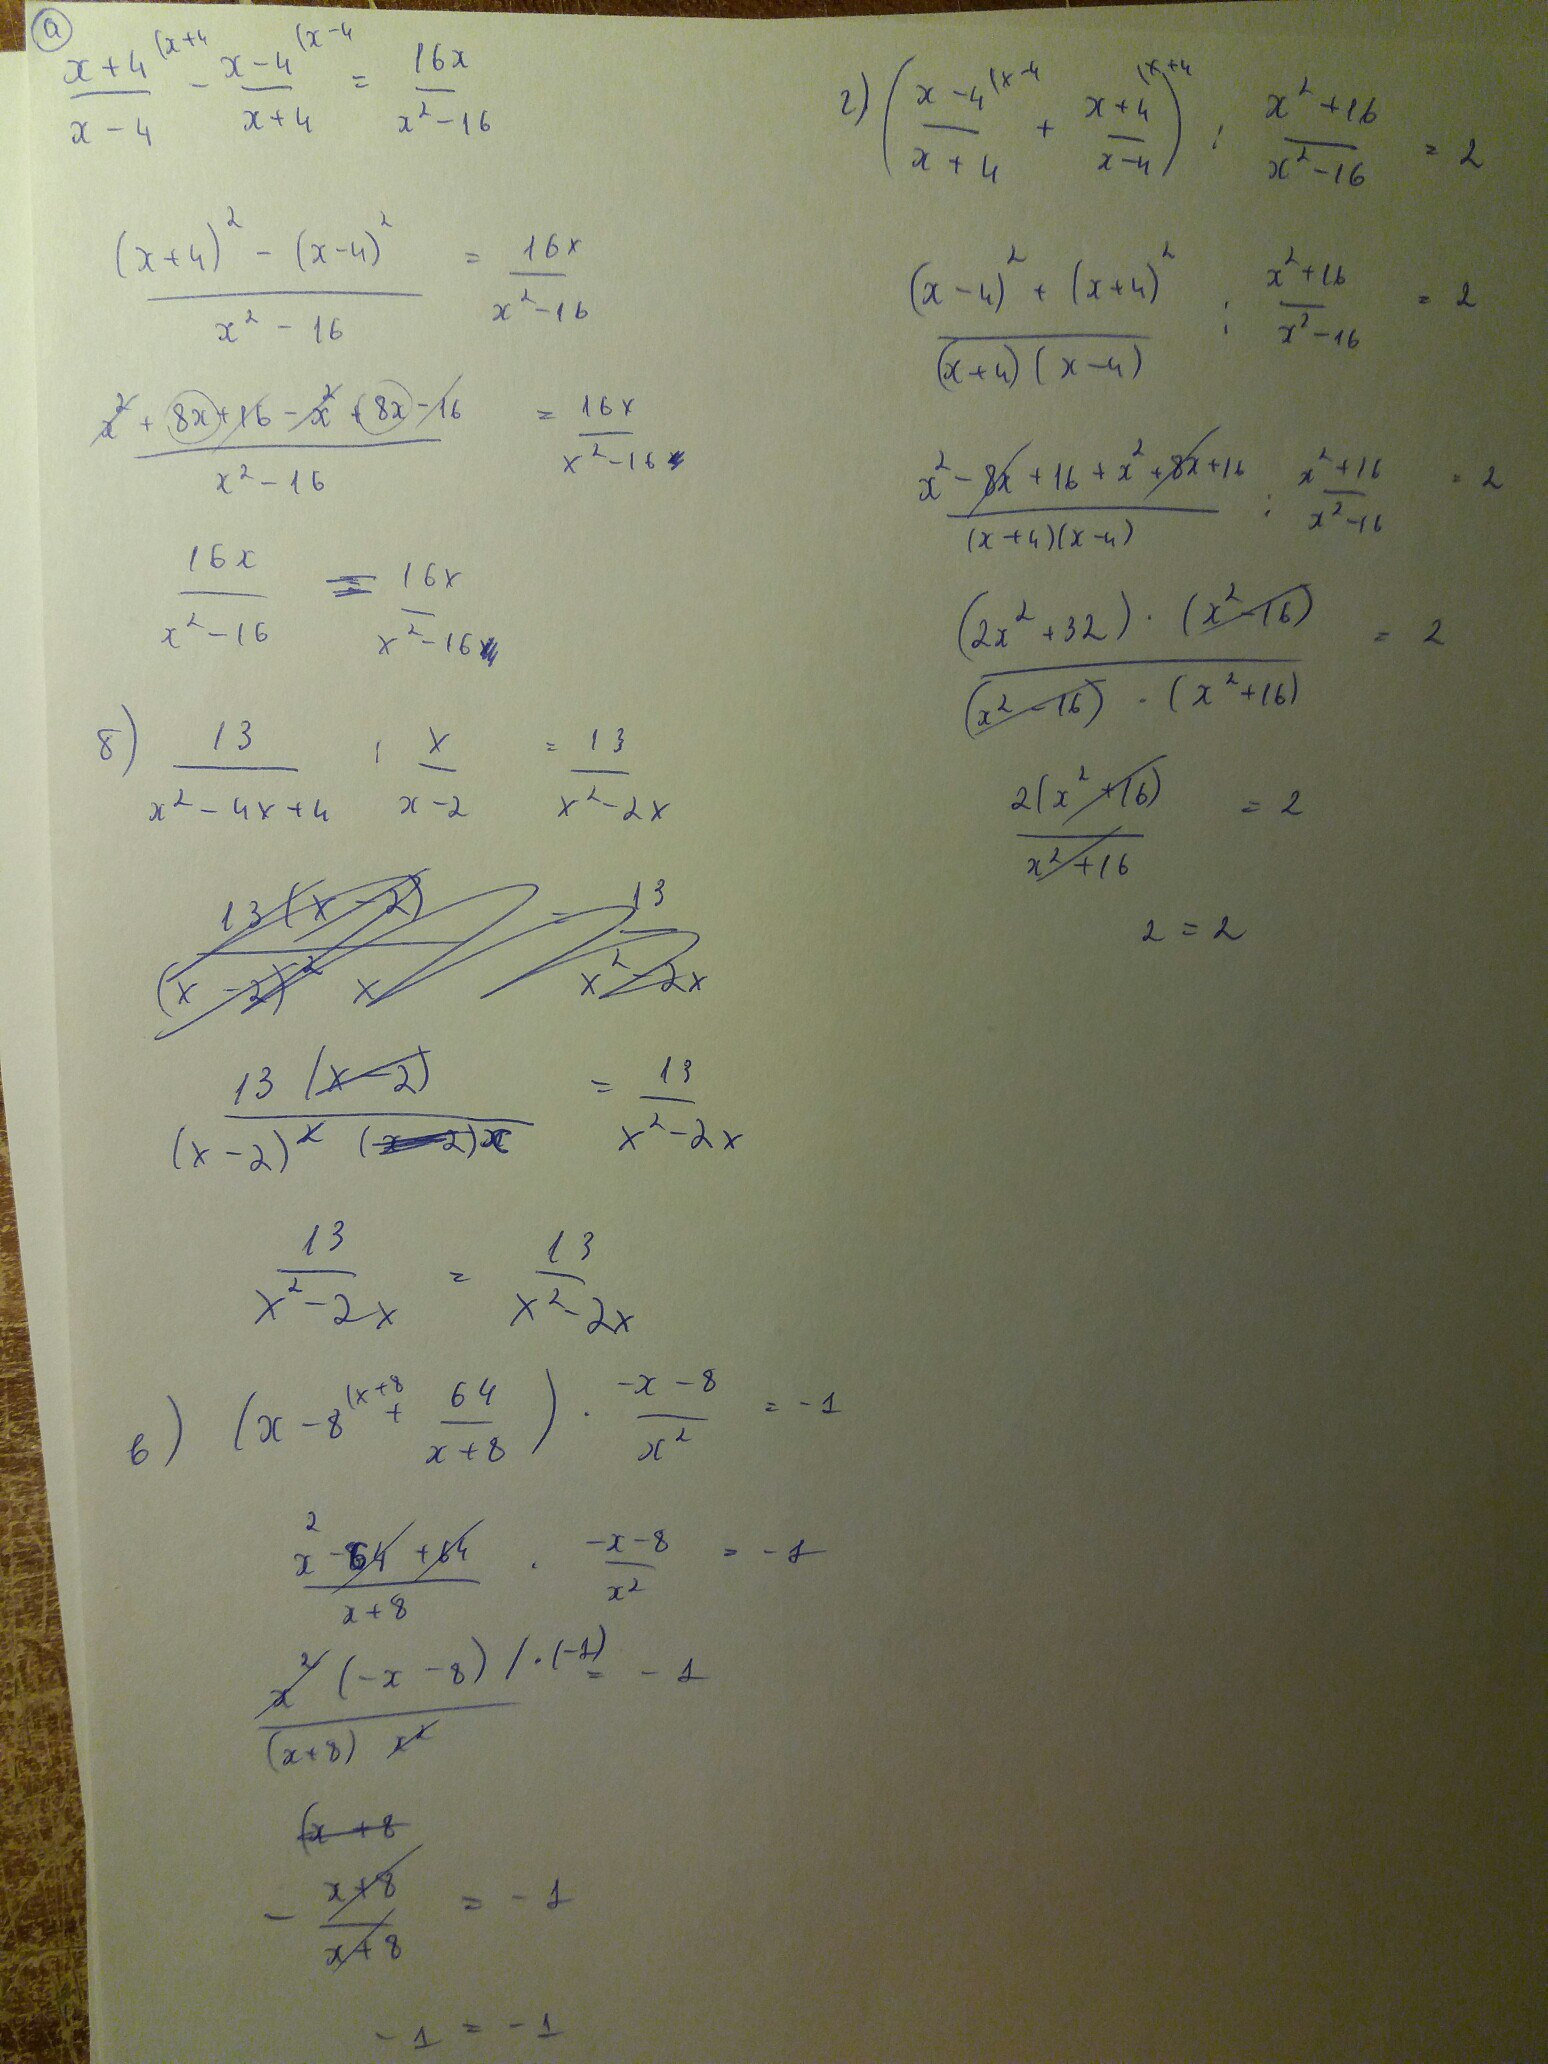 а
(x+4 (x-4
x+4/x-4 - x-4/x+4 = 16x/x²-16
(x+4)² - (x-4)²/x² - 16 = 16x/x²-16
x² + 8x + 16 - x² + 8x - 16/x² - 16 = 16x/x²-16
16x/x²-16 = 16x/x²-16
б) 13/x²-4x+4 : x/x-2 = 13/x²-2x
13(x-2)/(x-2)² x = 13/x²-2x
13(x-2)/(x-2)² (x-2)x = 13/x²-2x
13/x²-2x = 13/x²-2x
(x+8
в) (x-8 + 64/x+8) · -x-8/x² = -1
x²-64+64/x+8 · -x-8/x² = -1
x²(-x-8)/(x+8) x² /·(-1) = -1
(x+8
- x+8/x+8 = -1
-1 = -1
(x-4 (x+4
г) (x-4/x+4 + x+4/x-4) : x²+16/x²-16 = 2
(x-4)² + (x+4)²/(x+4)(x-4) : x²+16/x²-16 = 2
x²-8x+16+x²+8x+16/(x+4)(x-4) : x²+16/x²-16 = 2
(2x²+32)·(x²-16)/(x²-16)·(x²+16) = 2
2(x²+16)/x²+16 = 2
2 = 2